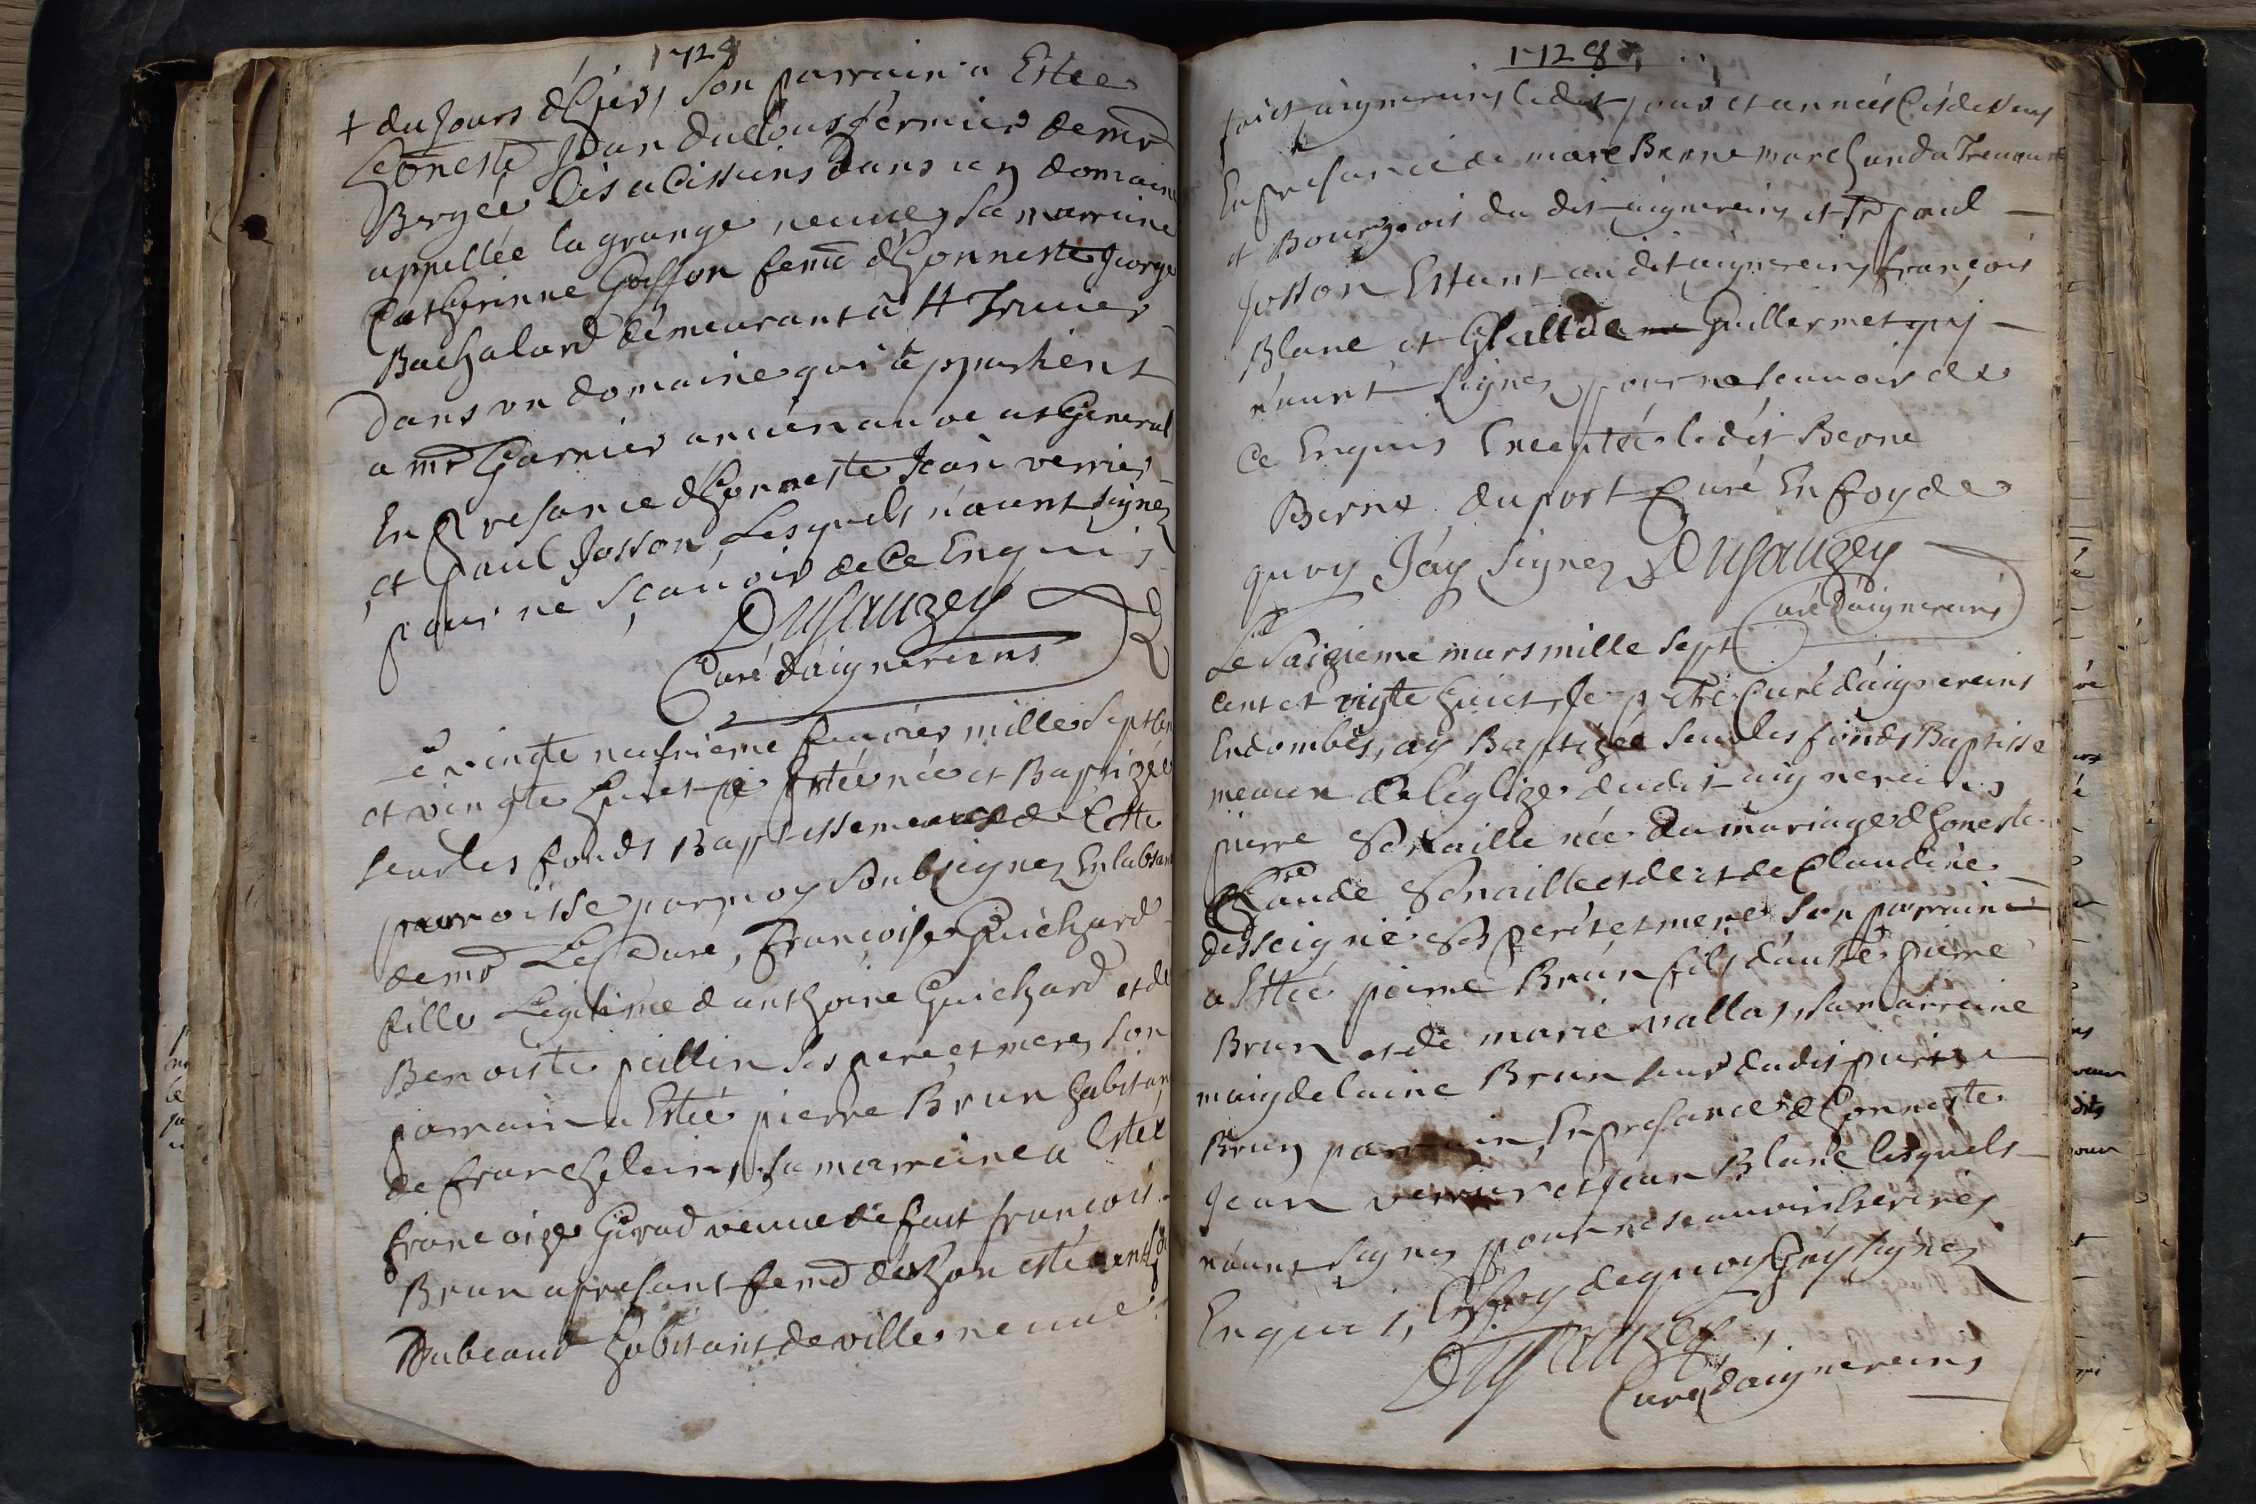 1728
+ du Jours d'hier, son parrain a Estee
honeste Jean Duclous fermier de mr
Bergée lisalissiens dans un domaine
appellée la grange neuve, sa marraine
Catherinne Goiffon feme d'honneste George
Bachalard demeurant a St Trivier
Dans un domaine qui appartient
a mr Garnier ancien avocat General
En presance d'honneste Jean verrier
et paul Josson, Lesquels n'aunt signez
pour ne sçauoir de Ce Enquis
Dusauzey
Curé d'aignereins
Le vingte neufvieme feuvrier mille sept Cent
et vingte huict a Estée née et Baptizée
seur les fonds Baptissemeaux de Cette
parroisse par moy Soubsignez En labsance
de mr Le Curé, françoise Guichard
fille Legitime d'anthoine Guichard et de
Benoiste peillin ses pere et mere, son
parrain a Estée pierre Brun habitant
de franchelein, sa marreine a Estee
francoize Girad veuve de feut francois
Brun apresant feme de honeste
Dubeaud habitant de ville neuve
1728
faict aignereins ledit jour et année Cis dessus
En presance de marc Berne marchand a Trevoux
et Bourgeois du dit aignereins et Sr paul
Josson Estant au dit aignereins, francois
Blanc et Claude Guillermet qui
n'aunt Signez pour ne scauoir de
Ce Enquis Exceptée ledit Berne
Berne duport Curé En foy de
quoy J'ay signez Dusauzey
Curé d'aignereins
Le Saizieme mars mille sept
cent et vigte huict, Je ptre Curé d'aignereins
En dombes, ay Baptizée seur les fonds Baptisse
meaux de l'eglize dudit aignereins
pierre Sonaille née du mariage d'honeste
Claude Sonaille et de et de Claudine
desseigne ses pere et mere, son parrain
a Estée pierre Brun fils d'autre pierre
Brun et de marie vallas, sa marreine
maigdelaine Brun seur dudit pierre
Brun parrain, En presance d'honneste
Jean verrier et Jean Blanc lesquels
n'aunt signez pour ne scauoir Escrire
Enquis, En foy de quoy J'ay signez
Dusauzey
Curé d'aignereins